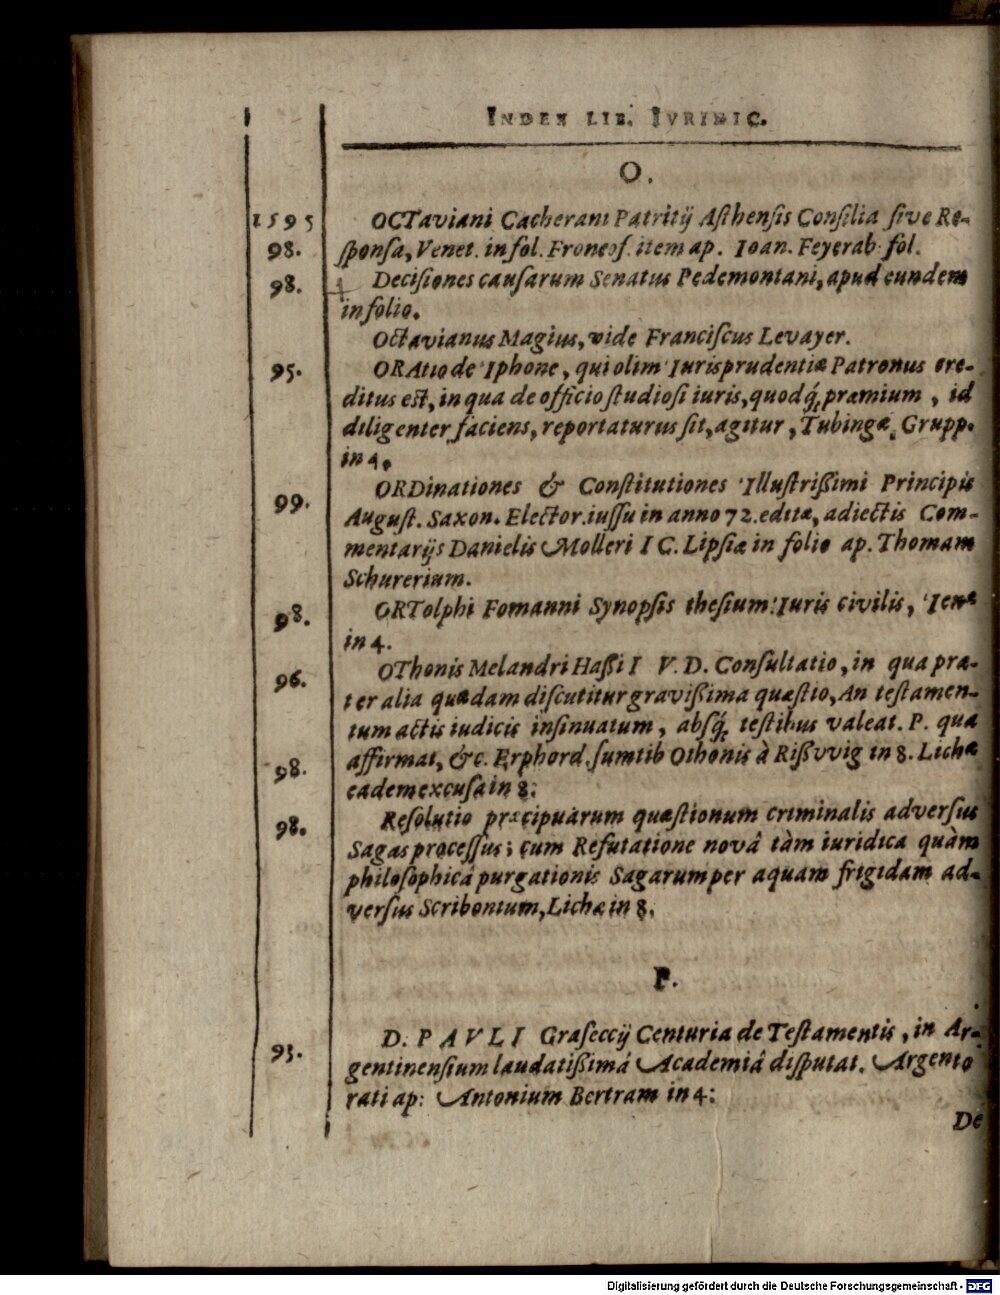 INDEX LIB. IVRIDIC.
O.
1595 OCTaviani Cacherani Patritij Asthensis Consilia sive Re-
98. sponsa, Venet. in fol. Froncof. item ap. Ioan. Feyerab. fol.
98. Decisiones causarum Senatus Pedemontani, apud eundem
in folio.
Octavianus Magius, vide Franciscus Levayer.
95. ORAtio de Iphone, qui olim Iurisprudentiæ Patronus cre-
ditus est, in qua de officio studiosi iuris, quodq́; præmium, id
diligenter faciens, reportaturus sit, agitur, Tubingæ, Grupp.
in 4.
99. ORDinationes & Constitutiones Illustrißimi Principis
August. Saxon. Elector. iussu in anno 72. editæ, adiectis Com-
mentarijs Danielis Molleri I C. Lipsiæ in folio ap. Thomam
Schurerium.
98. ORTolphi Fomanni Synopsis thesium Iuris civilis, Ienæ
in 4.
96. OThonis Melandri Hassi I V. D. Consultatio, in qua præ-
ter alia quædam discutitur gravißima quæstio, An testamen-
tum actis iudicis insinuatum, absq́; testibus valeat. P. qua
affirmat, &c. Erphord. sumtib Othonis à Rißvvig in 8. Lichæ
98. eadem excusa in 8.
98. Resolutio præcipuarum quæstionum criminalis adversus
Sagas processus; cum Refutatione novâ tàm iuridica quàm
philosophicâ purgationis Sagarum per aquam frigidam ad-
versus Scribonium, Lichæ in 8.
P.
93. D. PAVLI Graseccij Centuria de Testamentis, in Ar-
gentinensium laudatißimâ Academiâ disputat. Argento
rati ap: Antonium Bertram in 4:
De
Digitalisierung gefördert durch die Deutsche Forschungsgemeinschaft - DFG